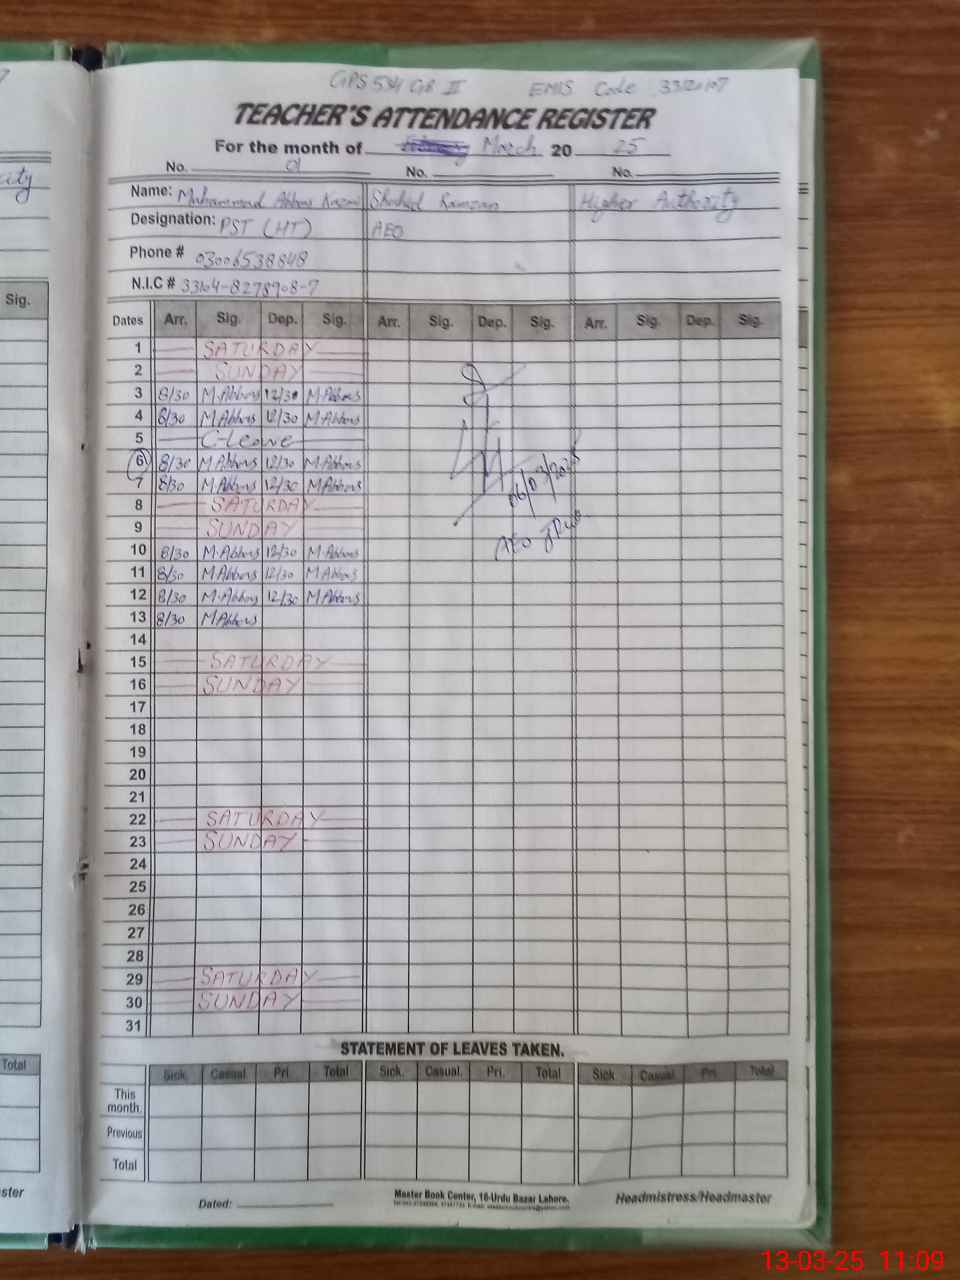 EMIS Code
TEACHER'S ATTENDANCE REGISTER
For the month of March 20 25
No. 01 No. No.
Name: Muhammad Abbas Shahid Ramzan Higher Authority
Designation: PST (HT) AEO
Phone # 03006538848
N.I.C # 33104-8278908-7
Dates Arr. Sig. Dep. Sig. Arr. Sig. Dep. Sig. Arr. Sig. Dep. Sig.
1 SATURDAY
2 SUNDAY
3 8/30 M.Abbas 12/30 M.Abbas
4 8/30 M.Abbas 12/30 M.Abbas
5 C-Leave
6 8/30 M.Abbas 12/30 M.Abbas
7 8/30 M.Abbas 12/30 M.Abbas
06/03/2025
8 SATURDAY
9 SUNDAY
AEO
10 8/30 M.Abbas 12/30 M.Abbas
11 8/30 M.Abbas 12/30 M.Abbas
12 8/30 M.Abbas 12/30 M.Abbas
13 8/30 M.Abbas
14
15 SATURDAY
16 SUNDAY
17
18
19
20
21
22 SATURDAY
23 SUNDAY
24
25
26
27
28
29 SATURDAY
30 SUNDAY
31
STATEMENT OF LEAVES TAKEN.
Sick. Casual. Pri. Total Sick. Casual. Pri. Total Sick. Casual. Pri. Total
This month.
Previous
Total
Dated:
Master Book Center, 16-Urdu Bazar Lahore.
Headmistress/Headmaster
Sig.
Total
13-03-25 11:09